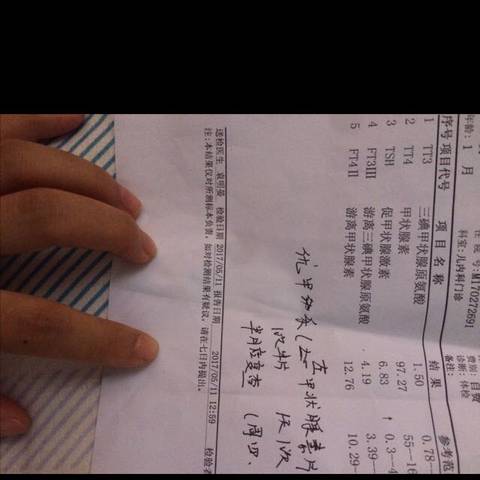 年龄: 1 月 科室: 儿内科门诊 诊断: 体检
号: M170272691 费别: 自费
备注:
序号 项目代号 项 目 名 称 结 果 参考范
1 TT3 三碘甲状腺原氨酸 1.50 0.78—
2 TT4 甲状腺素 97.27 55—16
3 TSH 促甲状腺激素 6.83 ↑ 0.3—4
4 FT3III 游离三碘甲状腺原氨酸 4.19 3.39—
5 FT4II 游离甲状腺素 12.76 10.29—
优甲乐 (左甲状腺素片
半月后复查 (周四、
送检医生 袁明曼 检验日期 2017/05/11 报告日期 2017/05/11 12:59 检验者
注: 本结果仅对所测标本负责, 如对检测结果有疑议, 请在七日内提出。